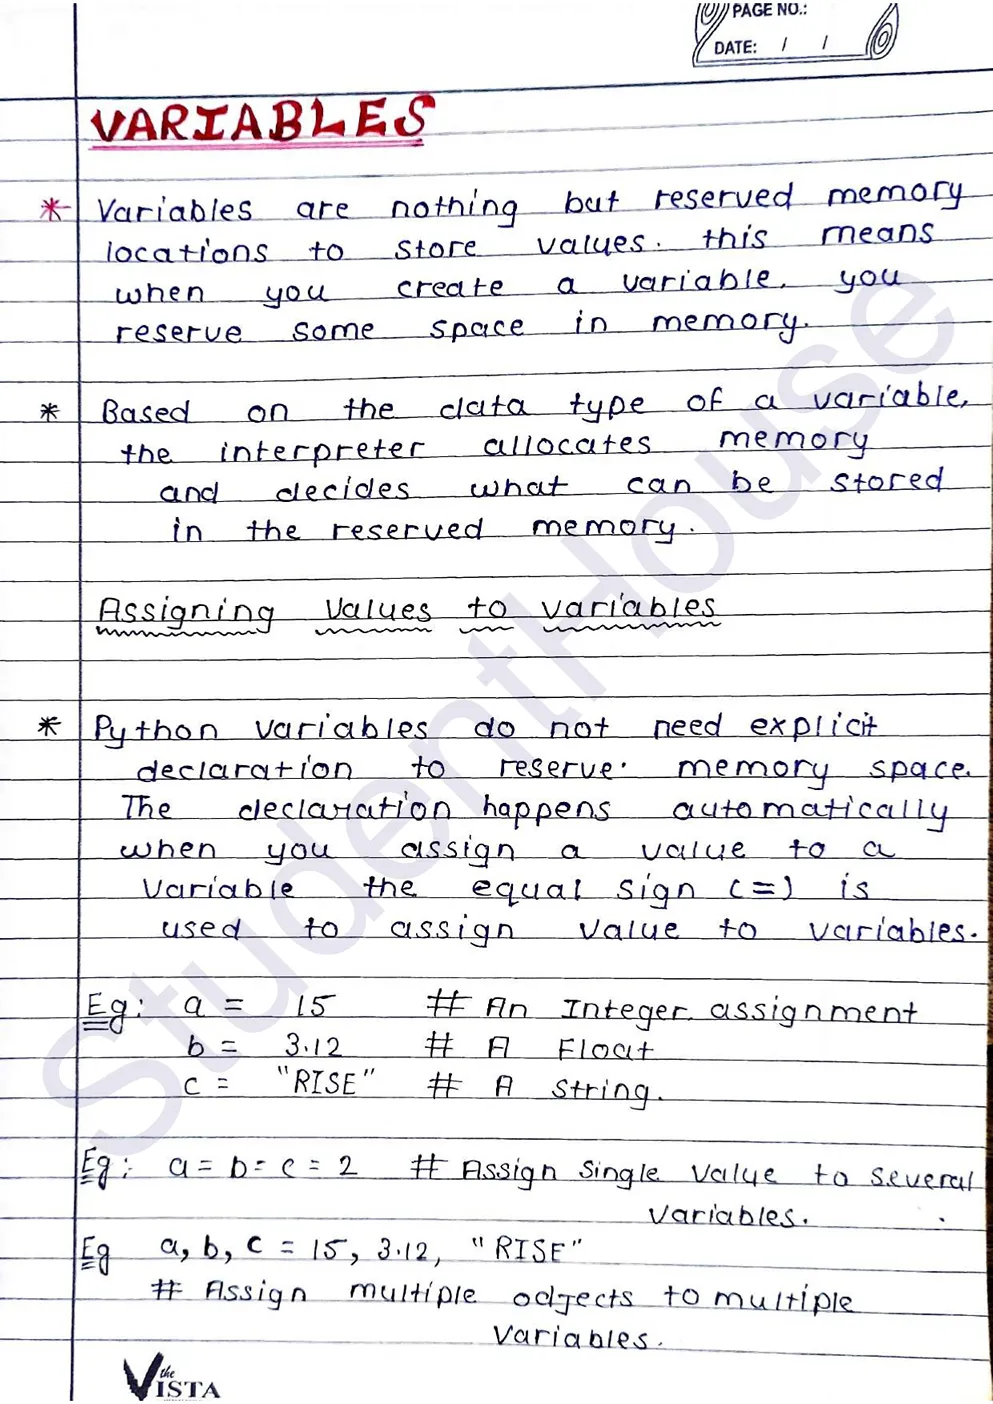 PAGE NO.:
DATE: / /
VARIABLES
* Variables are nothing but reserved memory
locations to store values. this means
when you create a variable, you
reserve some space in memory.
* Based on the data type of a variable,
the interpreter allocates memory
and decides what can be stored
in the reserved memory.
Assigning Values to variables
* Python variables do not need explicit
declaration to reserve. memory space.
The declaration happens automatically
when you assign a value to a
variable the equal sign (=) is
used to assign value to variables.
Eg: a = 15 # An Integer assignment
b = 3.12 # A Float
c = "RISE" # A string.
Eg: a = b = c = 2 # Assign single value to several
variables.
Eg a, b, c = 15, 3.12, "RISE"
# Assign multiple odjects to multiple
variables.
StudentHouse
the
VISTA